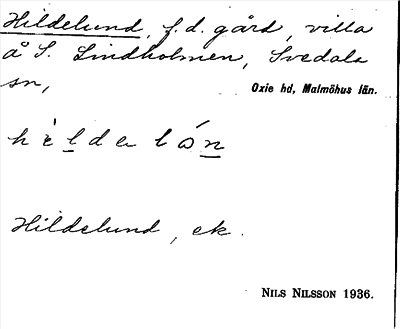 Hildelund, f.d. gård, villa
å S. Lindholmen, Svedala
sn,
Oxie hd, Malmöhus län.
Hildelund, ek.
NILS NILSSON 1936.